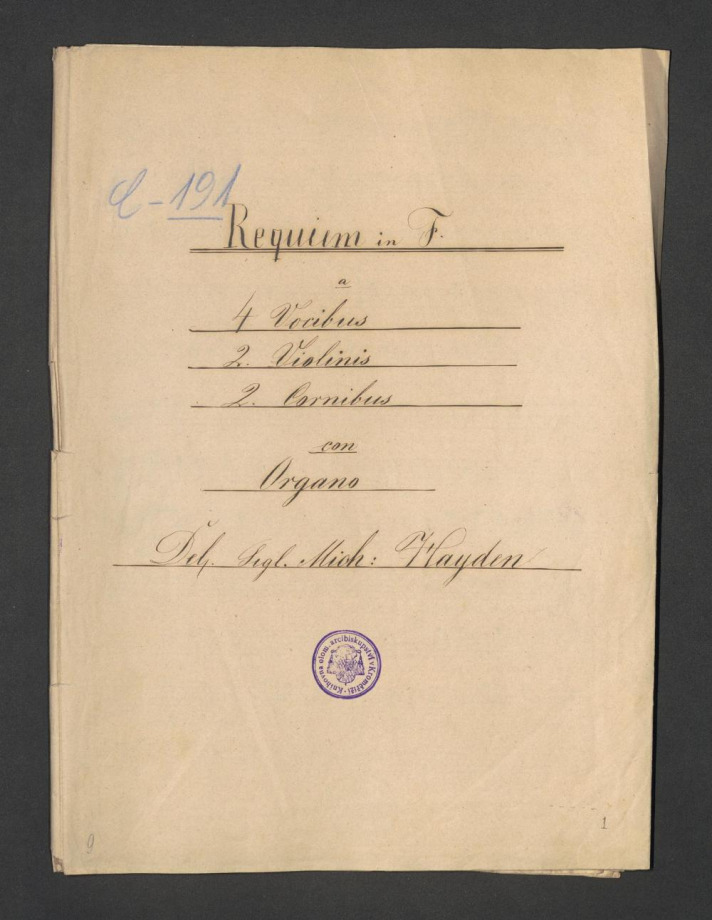 C-191
Requiem in F.
a
4 Vocibus
2. Violinis
2. Cornibus
con
Organo
Del. Sigl. Mich: Hayden
Knihovna olom. arcibiskupství v Kroměříži
9
1